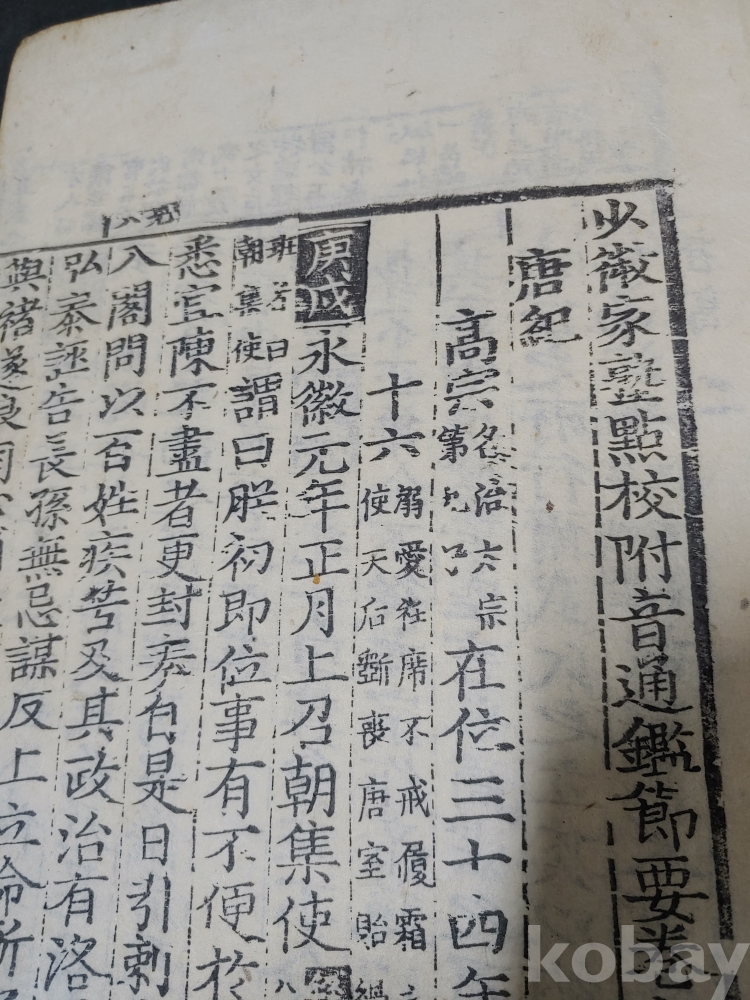 少微家塾點校附音通鑑節要卷
唐紀
高宗 名治太宗第九子 在位三十四年
十六 溺愛衽席不戒履霜
使天后斲喪唐室貽禍
庚戌 永徽元年正月上召朝集使
朝集使 謂曰朕初即位事有不便於
悉宜陳不盡者更封奏自是日引刺
入閤問以百姓疾苦及其政治有洛
弘泰誣告長孫無忌謀反上立命斬
與褚遂良同
kobay